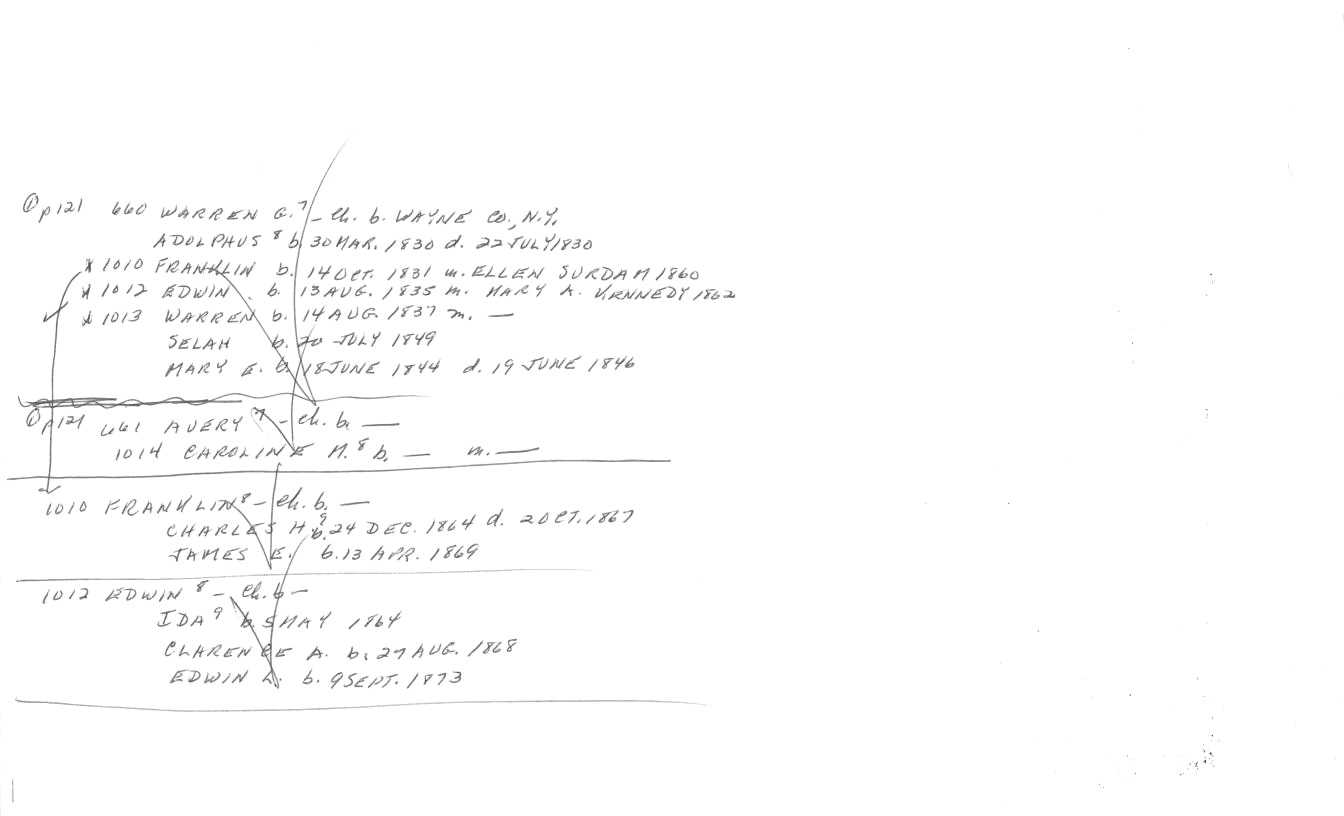 ① p121 660 WARREN G.⁷ – ch. b. WAYNE CO., N.Y.
ADOLPHUS ⁸ b. 30 MAR. 1830 d. 22 JULY 1830
* 1010 FRANKLIN b. 14 OCT. 1831 m. ELLEN SURDAM 1860
* 1012 EDWIN b. 13 AUG. 1835 m. MARY A. KENNEDY 1862
* 1013 WARREN b. 14 AUG. 1837 m. —
SELAH b. 20 JULY 1849
MARY E. b. 18 JUNE 1844 d. 19 JUNE 1846
① p121 661 AVERY ⁷ – ch. b. —
1014 CAROLINE M.⁸ b. — m. —
1010 FRANKLIN⁸ – ch. b. —
CHARLES H.⁹ b. 24 DEC. 1864 d. 2 OCT. 1867
JAMES E. b. 13 APR. 1869
1012 EDWIN ⁸ – ch. b –
IDA⁹ b. 5 MAY 1864
CLARENCE A. b. 27 AUG. 1868
EDWIN L. b. 9 SEPT. 1873